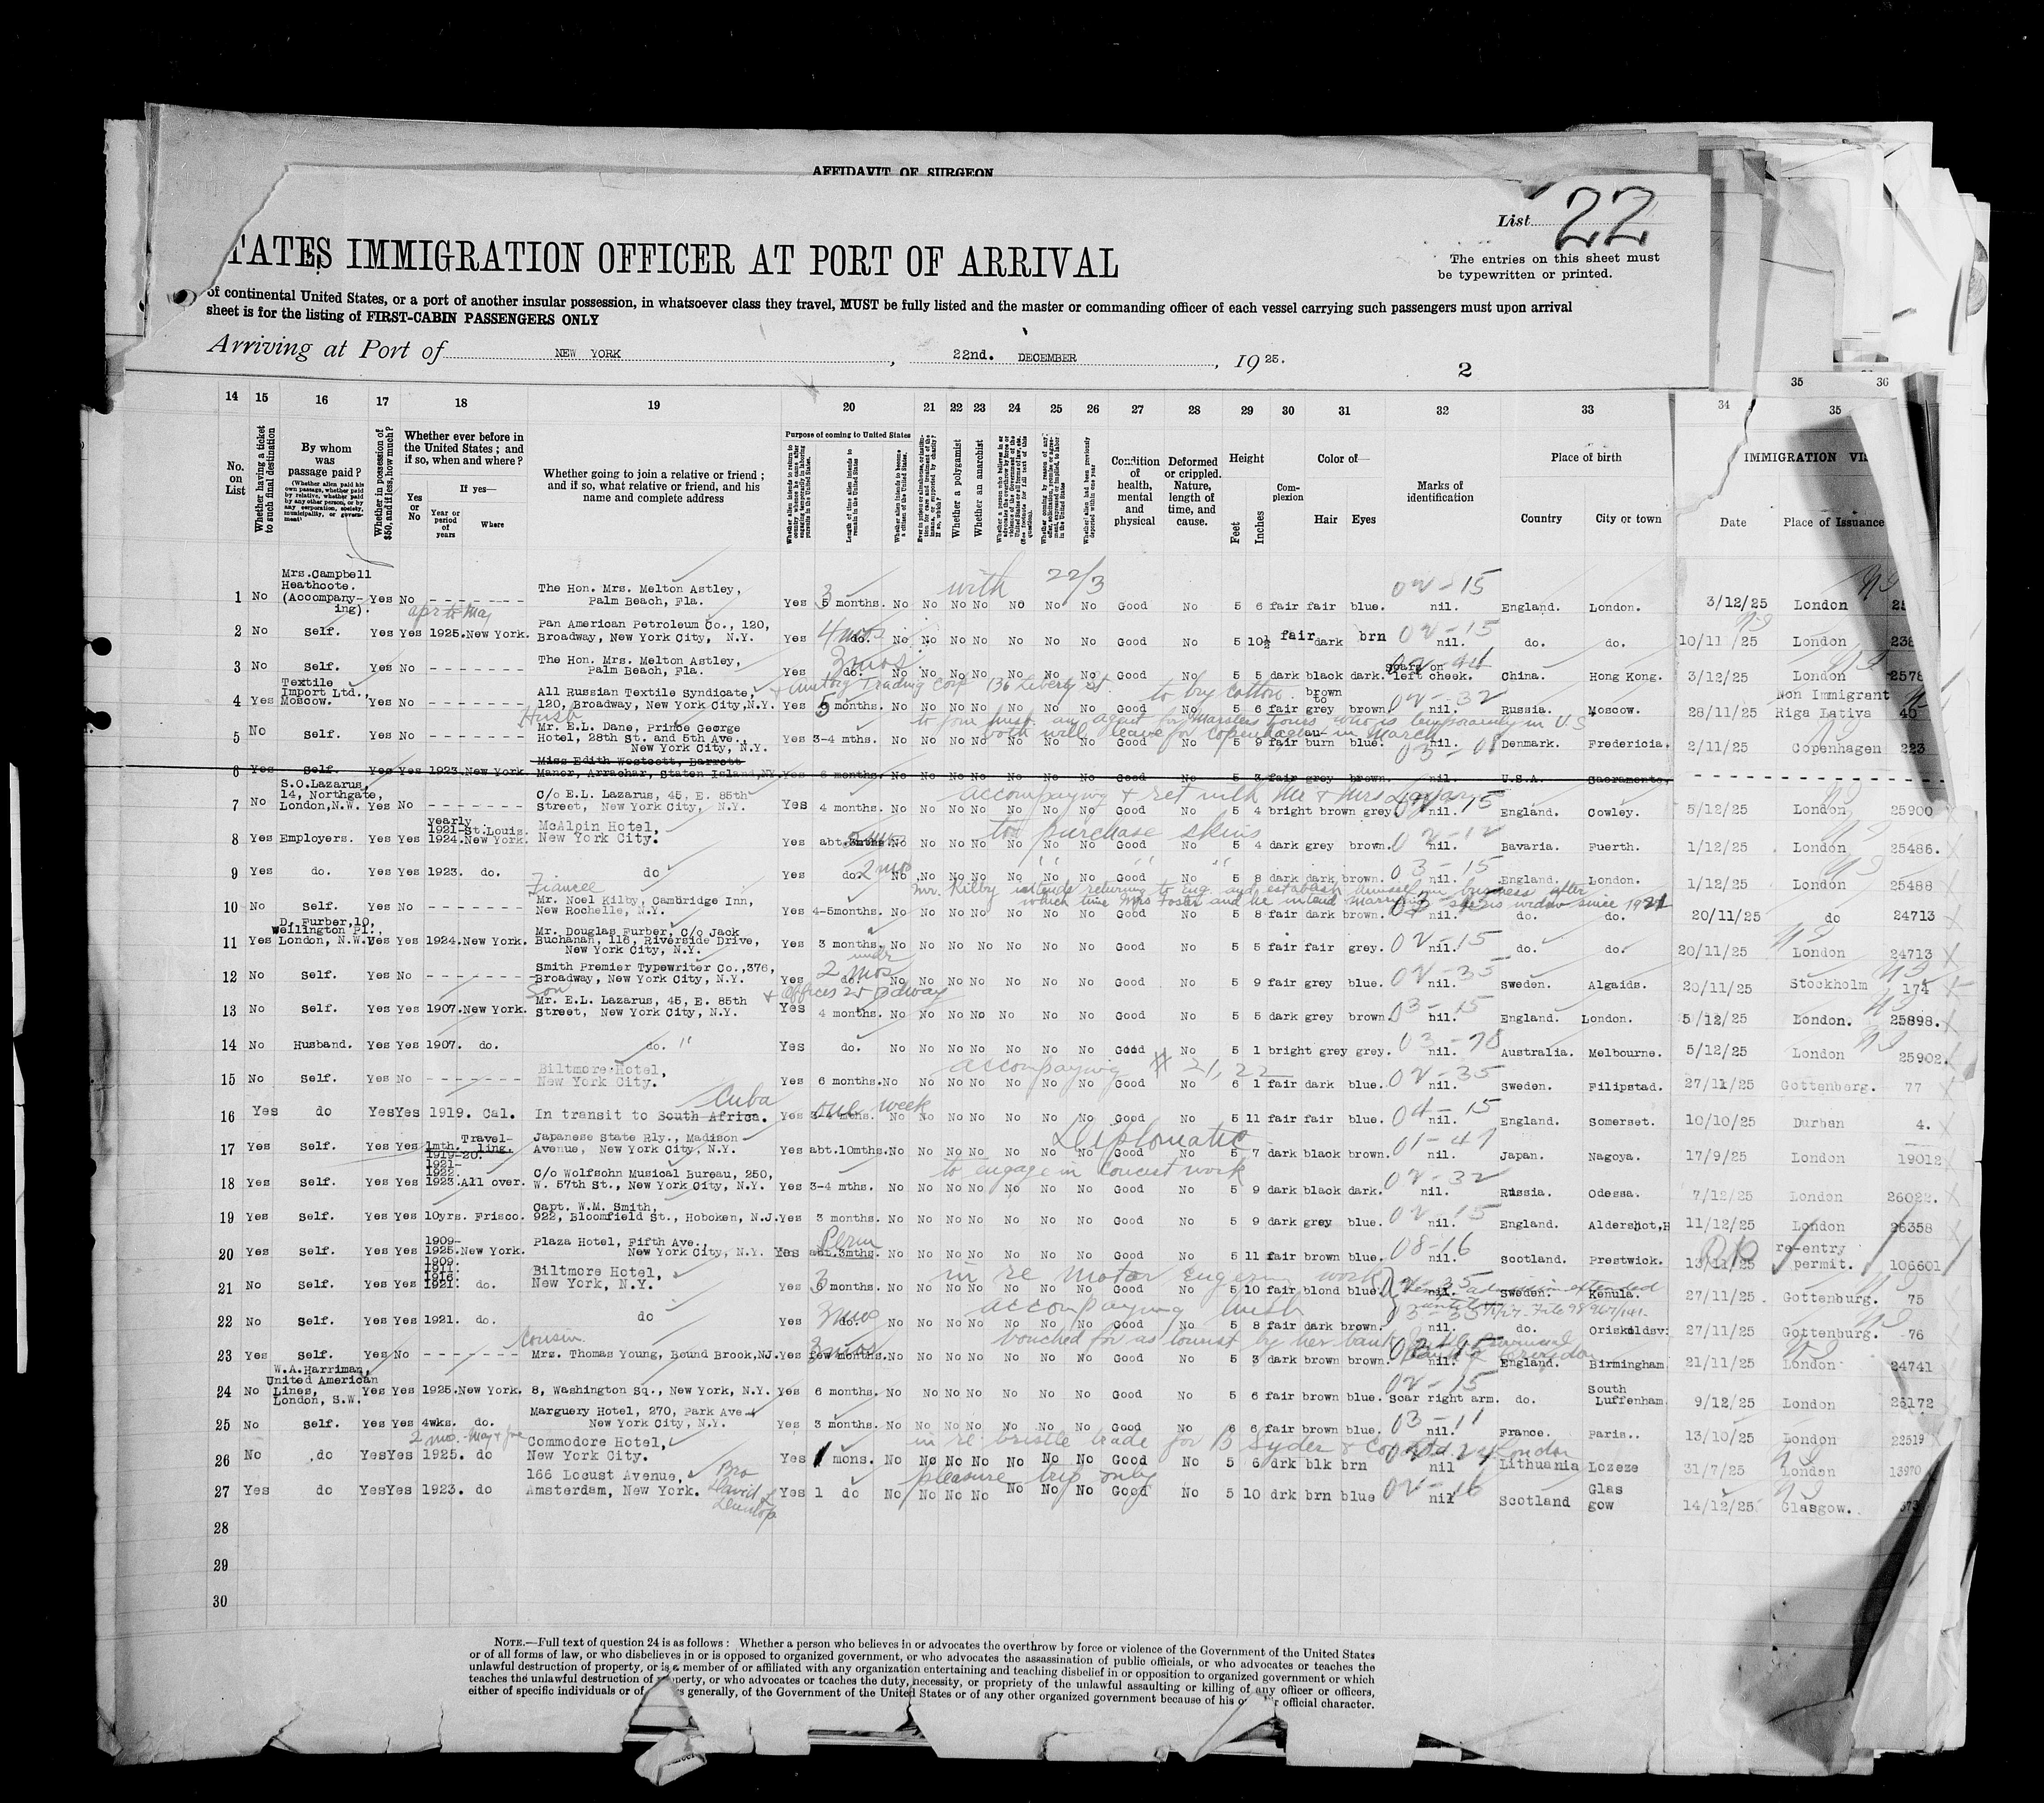 AFFIDAVIT OF SURGEON
List 22
TATES IMMIGRATION OFFICER AT PORT OF ARRIVAL
The entries on this sheet must
be typewritten or printed.
of continental United States, or a port of another insular possession, in whatsoever class they travel, MUST be fully listed and the master or commanding officer of each vessel carrying such passengers must upon arrival
sheet is for the listing of FIRST-CABIN PASSENGERS ONLY
Arriving at Port of NEW YORK, 22nd. DECEMBER, 19 25.
2
14 15 16 17 18 19 20 21 22 23 24 25 26 27 28 29 30 31 32 33 34 35 36
No. on List
Whether having a ticket to such final destination
By whom was passage paid?
(Whether alien paid his own passage, whether paid by relative, whether paid by any other person, or by any corporation, society, municipality, or government)
Whether in possession of $50, and if less, how much?
Whether ever before in the United States; and if so, when and where?
Yes or No
If yes—
Year or period of years
Where
Whether going to join a relative or friend; and if so, what relative or friend, and his name and complete address
Purpose of coming to United States
Length of time alien intends to remain in the United States
Whether alien intends to become a citizen of the United States
Whether a polygamist
Whether an anarchist
Condition of health, mental and physical
Deformed or crippled. Nature, length of time, and cause.
Height
Feet
Inches
Complexion
Color of—
Hair Eyes
Marks of identification
Place of birth
Country City or town
IMMIGRATION VI
Date Place of Issuance
1 No Mrs. Campbell Heathcote. (Accompanying). Yes No - - - - - - - - The Hon. Mrs. Melton Astley, Palm Beach, Fla. Yes 3 5 months. No No No No No No No Good No 5 6 fair fair blue. nil. England. London. 3/12/25 London
with 22/3
02-15
apr to May
2 No Self. Yes Yes 1925. New York. Pan American Petroleum Co., 120, Broadway, New York City, N.Y. Yes 4 mos do. No No No No No No No Good No 5 10½ fair dark brn 02-15 nil. do. do. 10/11/25 London
3 No Self. Yes No - - - - - - - The Hon. Mrs. Melton Astley, Palm Beach, Fla. Yes 3 mos do. No No No No No No No Good No 5 5 dark black dark. scar on left cheek. China. Hong Kong. 3/12/25 London 2578
+ Amtorg Trading Corp 136 Liberty St. to buy cotton.
4 Yes Textile Import Ltd., Moscow. Yes No - - - - - - - All Russian Textile Syndicate, 120, Broadway, New York City, N.Y. Yes 5 months. No No No No No No No Good No 5 6 fair brown to grey brown. 02-32 nil. Russia. Moscow. 28/11/25 Non Immigrant Riga Lativa 40
Husb
to join husb. an agent for Marsters Tours who is temporarily in U S
both will leave for Copenhagen in March
5 No Self. Yes No - - - - - - - Mr. E.L. Dane, Prince George Hotel, 28th St. and 5th Ave., New York City, N.Y. Yes 3-4 mths. No No No No No No No Good No 5 9 fair auburn blue. 03-08 nil. Denmark. Fredericia. 2/11/25 Copenhagen 223
6 Yes Self. Yes Yes 1923. New York. Miss Edith Westcott, Barrett Manor, Arrachar, Staten Island, NY. Yes 6 months. No No No No No No No Good No 5 3 fair grey brown. nil. U.S.A. Sacramento.
accompanying & ret with Mr & Mrs Lazarus
7 No S.O. Lazarus, 14, Northgate, London, N.W. Yes No - - - - - - - C/o E.L. Lazarus, 45, E. 85th Street, New York City, N.Y. Yes 4 months. No No No No No No No Good No 5 4 bright brown grey nil. England. Cowley. 5/12/25 London 25900
to purchase skins
8 Yes Employers. Yes Yes yearly 1921-1924. St. Louis. New York. McAlpin Hotel, New York City. Yes abt. No No No No No No No Good No 5 4 dark grey brown. 02-12 nil. Bavaria. Fuerth. 1/12/25 London 25486.
9 Yes do. Yes Yes 1923. do. do Yes do. 2 mo No No No No No No No Good No 5 8 dark dark brown. 03-15 nil. England. London. 1/12/25 London 25488
Fiancee
Mr. Kilby intends returning to Eng. and establish himself in business after
which time Mrs Foster and he intend marrying she is widow since 1921
10 No Self. Yes No - - - - - - - Mr. Noel Kilby, Cambridge Inn, New Rochelle, N.Y. Yes 4-5months. No No No No No No No Good No 5 8 fair dark brown. nil. do. do. 20/11/25 do 24713
11 Yes D. Furber, 10, Wellington Pl., London, N.W. Yes Yes 1924. New York. Mr. Douglas Furber, C/o Jack Buchanan, 118, Riverside Drive, New York City, N.Y. Yes 3 months. No No No No No No No Good No 5 5 fair fair grey. 02-15 nil. do. do. 20/11/25 London 24713
12 No Self. Yes No - - - - - - - Smith Premier Typewriter Co., 376, Broadway, New York City, N.Y. Yes under 2 mos do. No No No No No No No Good No 5 9 fair grey blue. 02-35 nil. Sweden. Algaids. 20/11/25 Stockholm 174
Son
+ Offices 25 Bdway
13 No Self. Yes Yes 1907. New York. Mr. E.L. Lazarus, 45, E. 85th Street, New York City, N.Y. Yes 4 months. No No No No No No No Good No 5 5 dark grey brown. 03-15 nil. England. London. 5/12/25 London. 25898.
14 No Husband. Yes Yes 1907. do. do. " Yes do. No No No No No No No Good No 5 1 bright grey grey. 03-78 nil. Australia. Melbourne. 5/12/25 London 25902.
accompanying # 21, 22
15 No Self. Yes No - - - - - - - Biltmore Hotel, New York City. Yes 6 months. No No No No No No No Good No 6 1 fair dark blue. 02-35 nil. Sweden. Filipstad. 27/11/25 Gottenberg. 77
Cuba
one week
16 Yes do Yes Yes 1919. Cal. In transit to South Africa. Yes 3-4 mths. No No No No No No No Good No 5 11 fair fair blue. 04-15 nil. England. Somerset. 10/10/25 Durban 4.
Diplomatic
17 Yes Self. Yes Yes 1mth. 1919-20. Travelling. Japanese State Rly., Madison Avenue, New York City, N.Y. Yes abt. 10mths. No No No No No No No Good No 5 7 dark black brown. 01-47 nil. Japan. Nagoya. 17/9/25 London 19012
to engage in Concert work
18 Yes Self. Yes Yes 1921-1922. 1923. All over. C/o Wolfsohn Musical Bureau, 250, W. 57th St., New York City, N.Y. Yes 3-4 mths. No No No No No No No Good No 5 9 dark black dark. 02-32 nil. Russia. Odessa. 7/12/25 London 26022.
19 Yes Self. Yes Yes 10yrs. Frisco. Capt. W.M. Smith, 922, Bloomfield St., Hoboken, N.J. Yes 3 months. No No No No No No No Good No 5 9 dark grey blue. 02-15 nil. England. Aldershot, H 11/12/25 London 26358
20 Yes Self. Yes Yes 1909-1925. New York. Plaza Hotel, Fifth Ave., New York City, N.Y. Yes Perm abt. 3mths. No No No No No No No Good No 5 11 fair brown blue. 08-16 nil. Scotland. Prestwick. 13/11/25 re-entry permit. 106601
in re motor engering work
21 No Self. Yes Yes 1909. 1911. 1916. 1921. do. Biltmore Hotel, New York, N.Y. Yes 6 months. No No No No No No No Good No 5 10 fair blond blue. 02-35 nil. Sweden. Kenula. 27/11/25 Gottenburg. 75
accompanying husb
22 No Self. Yes Yes 1921. do. do Yes 3 mos do. No No No No No No No Good No 5 8 fair dark brown. 03-35 nil. do. 27/11/25 Gottenburg. 76
Cousin.
vouched for as tourist by her bank
23 Yes Self. Yes No - - - - - - - Mrs. Thomas Young, Bound Brook, NJ. Yes 3 mos few months. No No No No No No No Good No 5 3 dark brown brown. nil. England. Birmingham 21/11/25 London 24741
24 No W.A. Harriman, United American Lines, London, S.W. Yes Yes 1925. New York. 8, Washington Sq., New York, N.Y. Yes 6 months. No No No No No No No Good No 5 6 fair brown blue. 02-15 Scar right arm. do. South Luffenham. 9/12/25 London 26172
25 No Self. Yes Yes 4wks. do. Marguery Hotel, 270, Park Ave. New York City, N.Y. Yes 3 months. No No No No No No No Good No 6 6 fair brown blue. 03-11 nil. France. Paris.. 13/10/25 London 22519
2 mos. May & June
in re bristle trade for B Syder & Co Ltd. London
26 No do Yes Yes 1925. do Commodore Hotel, New York City. Yes 1 mons. No No No No No No No Good No 5 6 drk blk brn nil Lithuania Lozeze 31/7/25 London 13970
pleasure trip only
27 Yes do Yes Yes 1923. do 166 Locust Avenue, Amsterdam, New York. Bro David Dunlop Yes 1 do No No No No No No No Good No 5 10 drk brn blue 02-16 nil Scotland Glas gow 14/12/25 Glasgow.
28
29
30
NOTE.—Full text of question 24 is as follows: Whether a person who believes in or advocates the overthrow by force or violence of the Government of the United States
or of all forms of law, or who disbelieves in or is opposed to organized government, or who advocates the assassination of public officials, or who advocates or teaches the
unlawful destruction of property, or is a member of or affiliated with any organization entertaining and teaching disbelief in or opposition to organized government or which
teaches the unlawful destruction of property, or who advocates or teaches the duty, necessity, or propriety of the unlawful assaulting or killing of any officer or officers,
either of specific individuals or of generally, of the Government of the United States or of any other organized government because of his or official character.